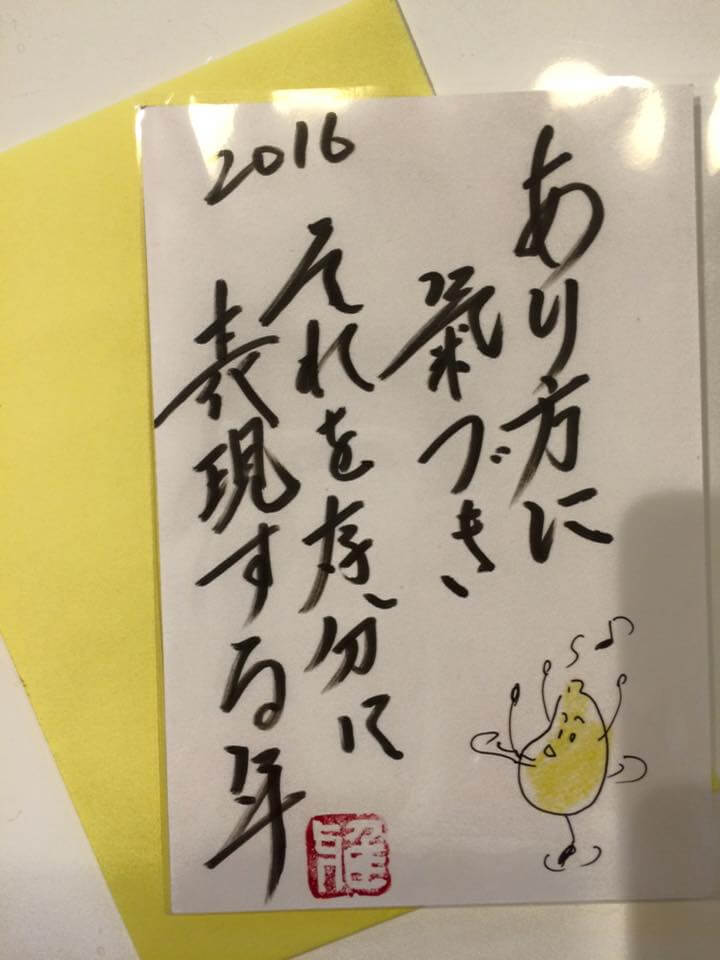 あり方に
氣づき
2016
それを存分に
表現する年
雅